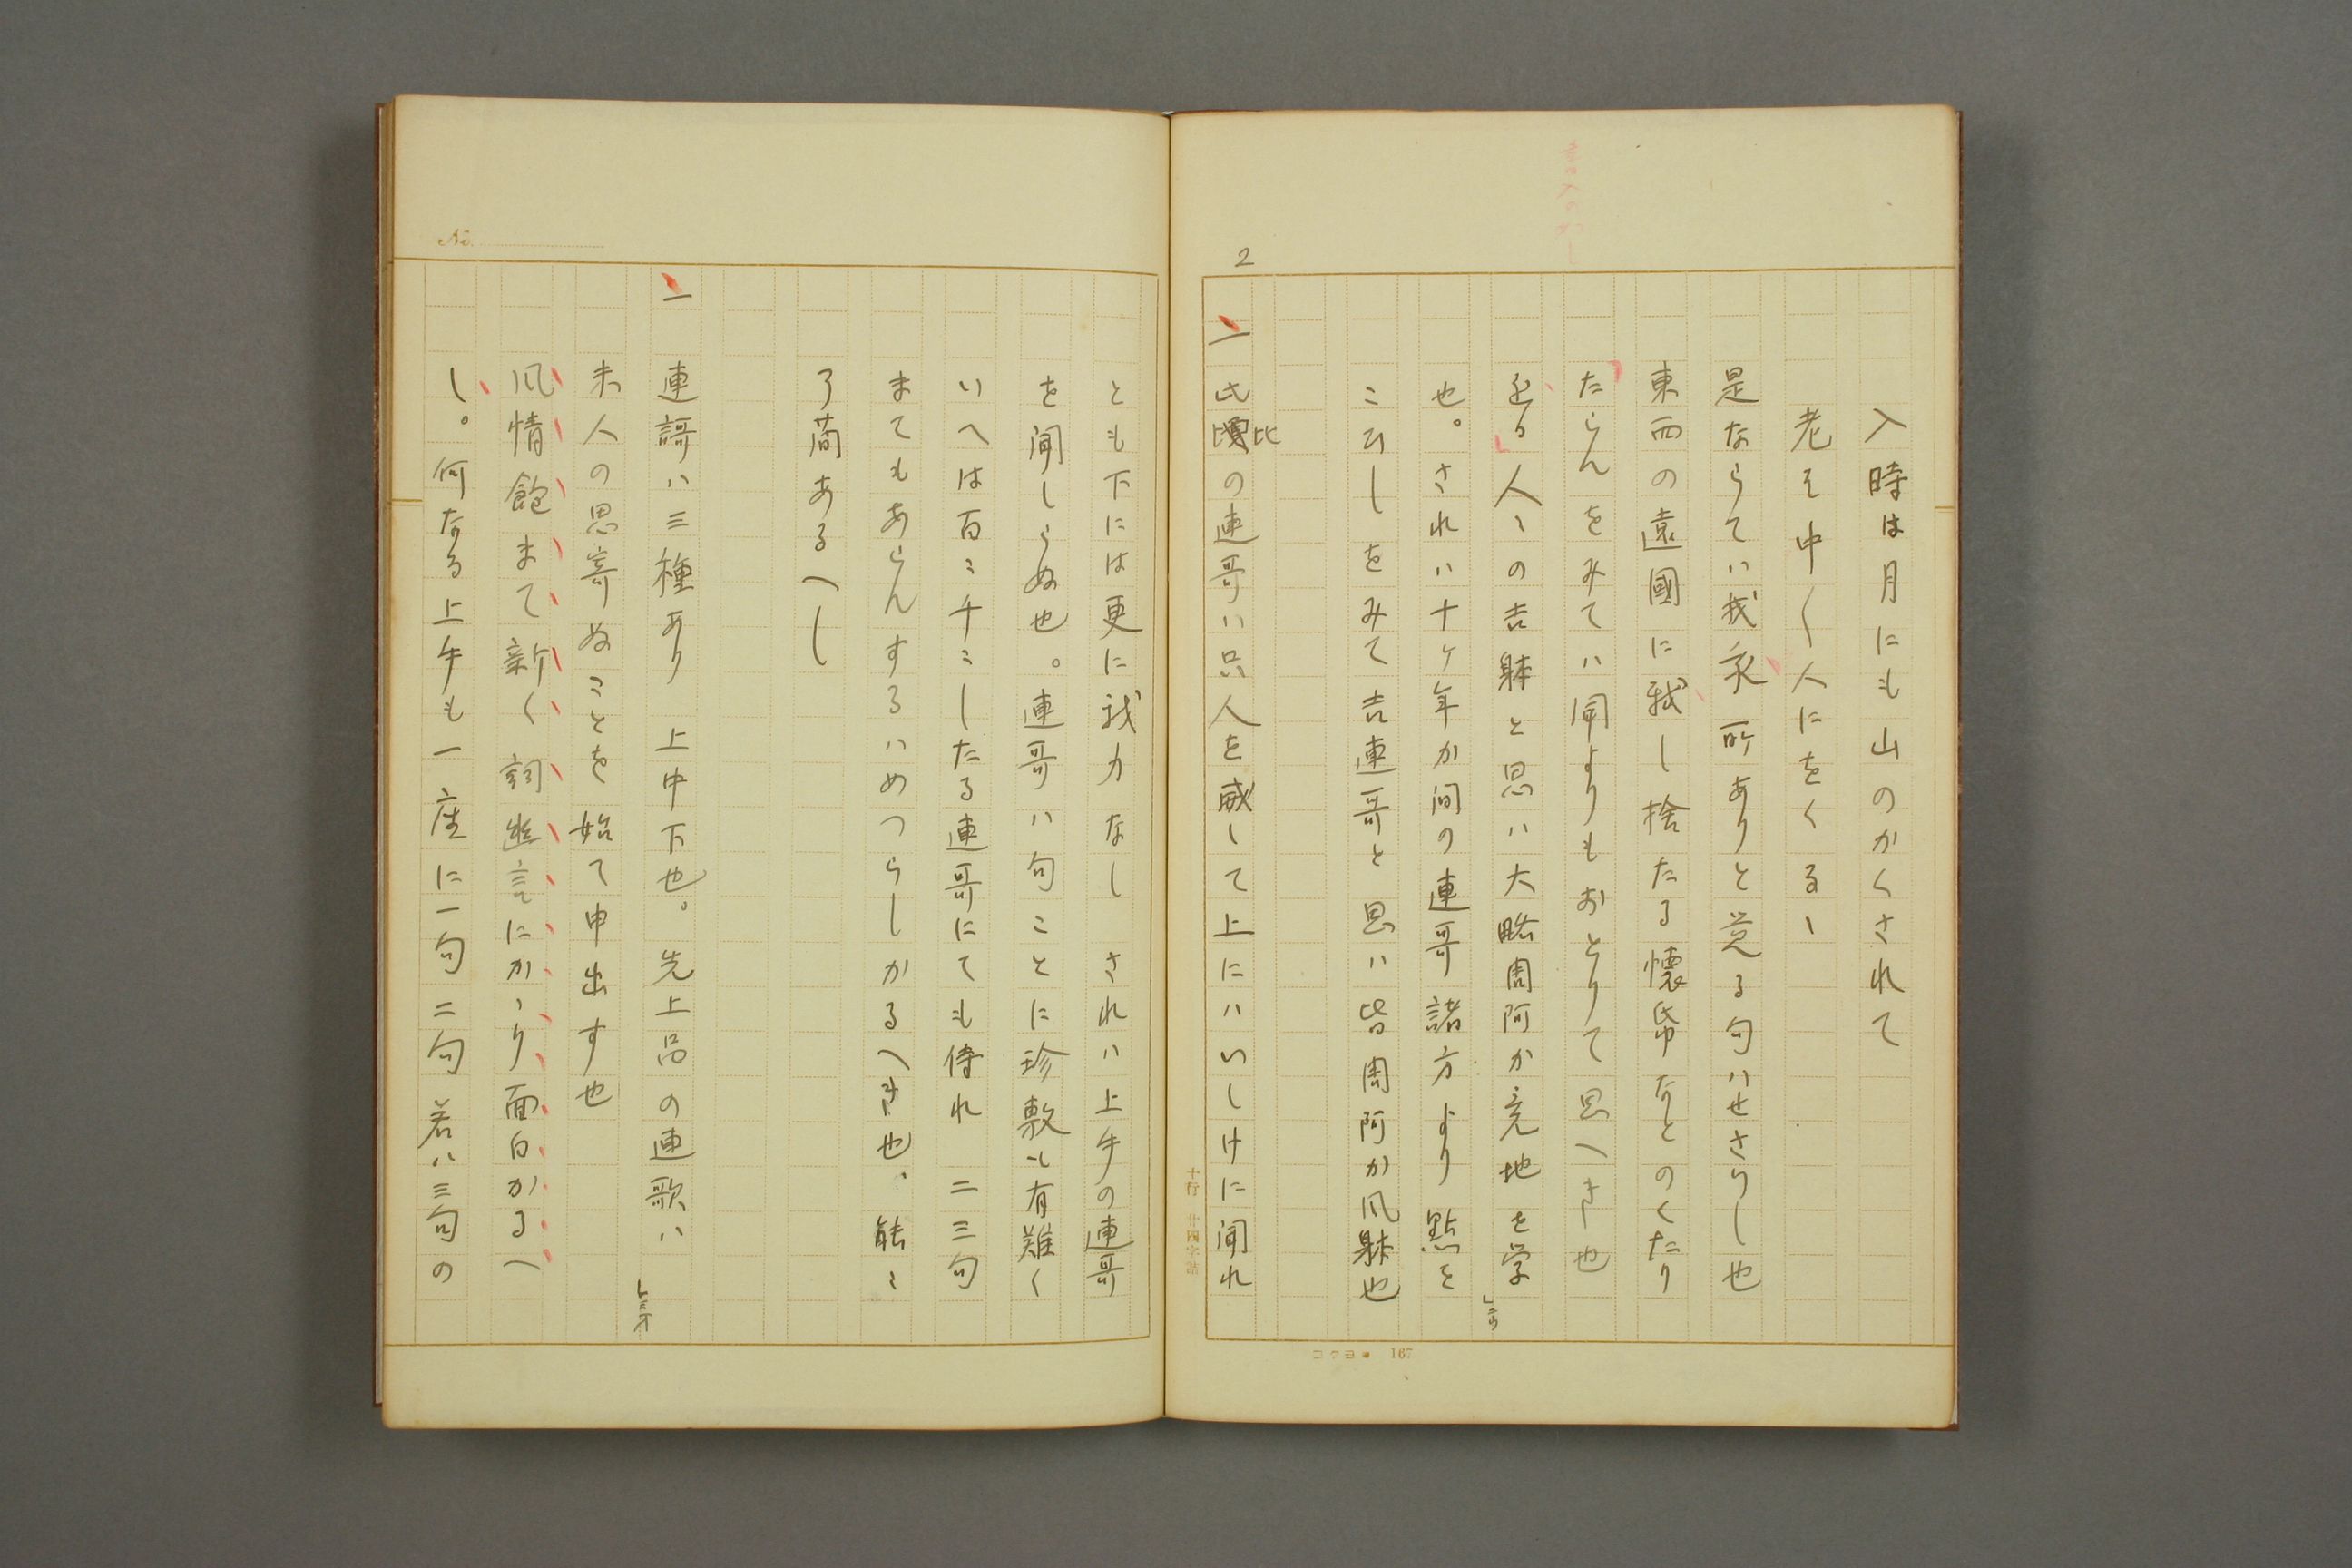 2
入時は月にも山のかくされて
老そ中〱人にをくるゝ
是ならてハ我ゝ所ありと覚る句ハせさりし也
東西の遠國に我し捨たる懐帋なとのくたり
たらんをみてハ聞よりもおとりて思へき也
をる人〻の吉躰と思ハ大略周阿か意地を学
也。されハ十ヶ年か間の連哥諸方より點を
こひしをみて吉連哥と思ハ皆周阿か風躰也
一 此比の連哥ハ只人を威して上にハいしけに聞れ
十行 廿四字詰
コクヨ 167
No.
とも下には更に我力なし されハ上手の連哥
を聞しらぬ也。連哥ハ句ことに珍敷も有難く
いへは百〻千〻したる連哥にても侍れ 二三句
まてもあらんするハめつらしかるへき也、能〻
了簡あるへし
一 連謌ハ三種あり 上中下也。先上品の連歌ハ
未人の思寄ぬことを始て申出す也
風情飽まて新く詞幽玄にかゝり面白かるへ
し。何なる上手も一座に一句二句若ハ三句の